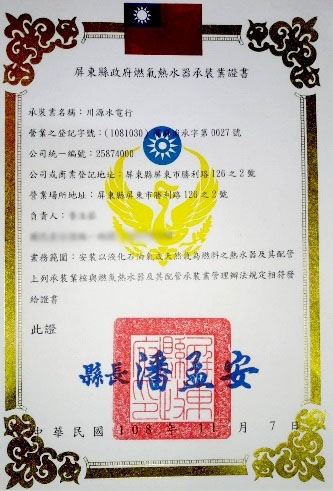 屏東縣政府燃氣熱水器承裝業證書
承裝業名稱：川源水電行
營業之登記字號：(1081030) 承字第0027號
公司統一編號：25874000
公司或商業登記地址：屏東縣屏東市勝利路126之2號
營業場所地址：屏東縣屏東市勝利路126之2號
負責人：
業務範圍：安裝以液化石油氣或天然氣為燃料之熱水器及其配管
上列承裝業核與燃氣熱水器及其配管承裝業管理辦法規定相符發
給證書
此證
縣長 潘孟安
中華民國 108 年 11 月 7 日